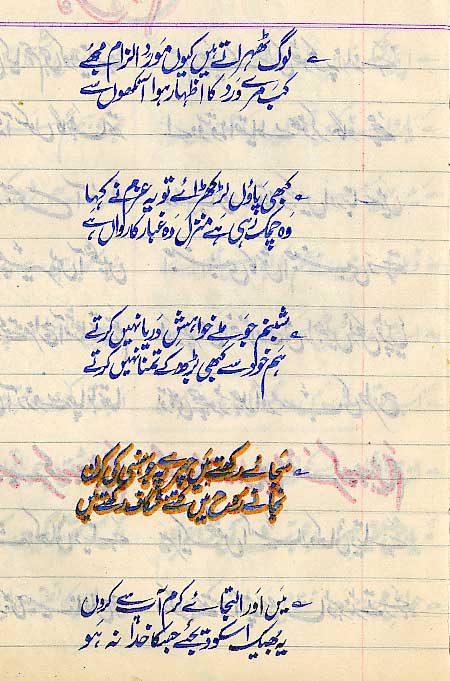 لوگ ٹھہراتے ہیں کیوں مَوردِ الزام مجھے
کب مرے درد کا اظہار ہوا آنکھوں سے
کبھی پاؤں لڑکھڑائے تو یہ عزم نے کہا
وہ چمک رہی ہے منزل وہ غبارِ کارواں ہے
شبنم جو ملے خواہشِ دریا نہیں کرتے
ہم خود سے کبھی بڑھ کے تمنا نہیں کرتے
سجائے رکھتے ہیں چہرے پہ جو ہنسی کی کرن
نجانے روح میں کتنے شگاف رکھتے ہیں
میں اور التجائے کرم آپ سے کروں
یہ بھیک اسکو دیجئے جسکا خدا نہ ہو